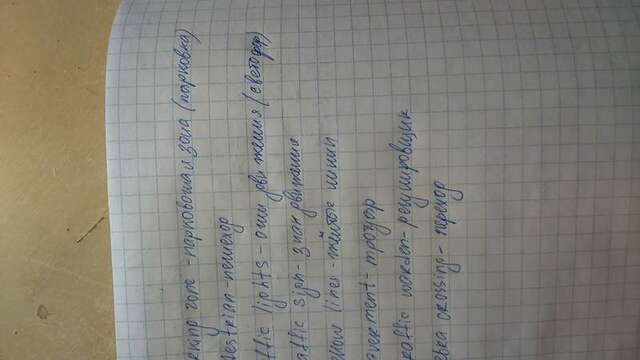 rking zone - парковочная зона (парковка)
destrian - пешеход
ffic lights - огни движения (светофор)
affic sign - знак движения
ellow lines - жёлтые линии
avement - тротуар
raffic warden - регулировщик
ebra crossing - переход